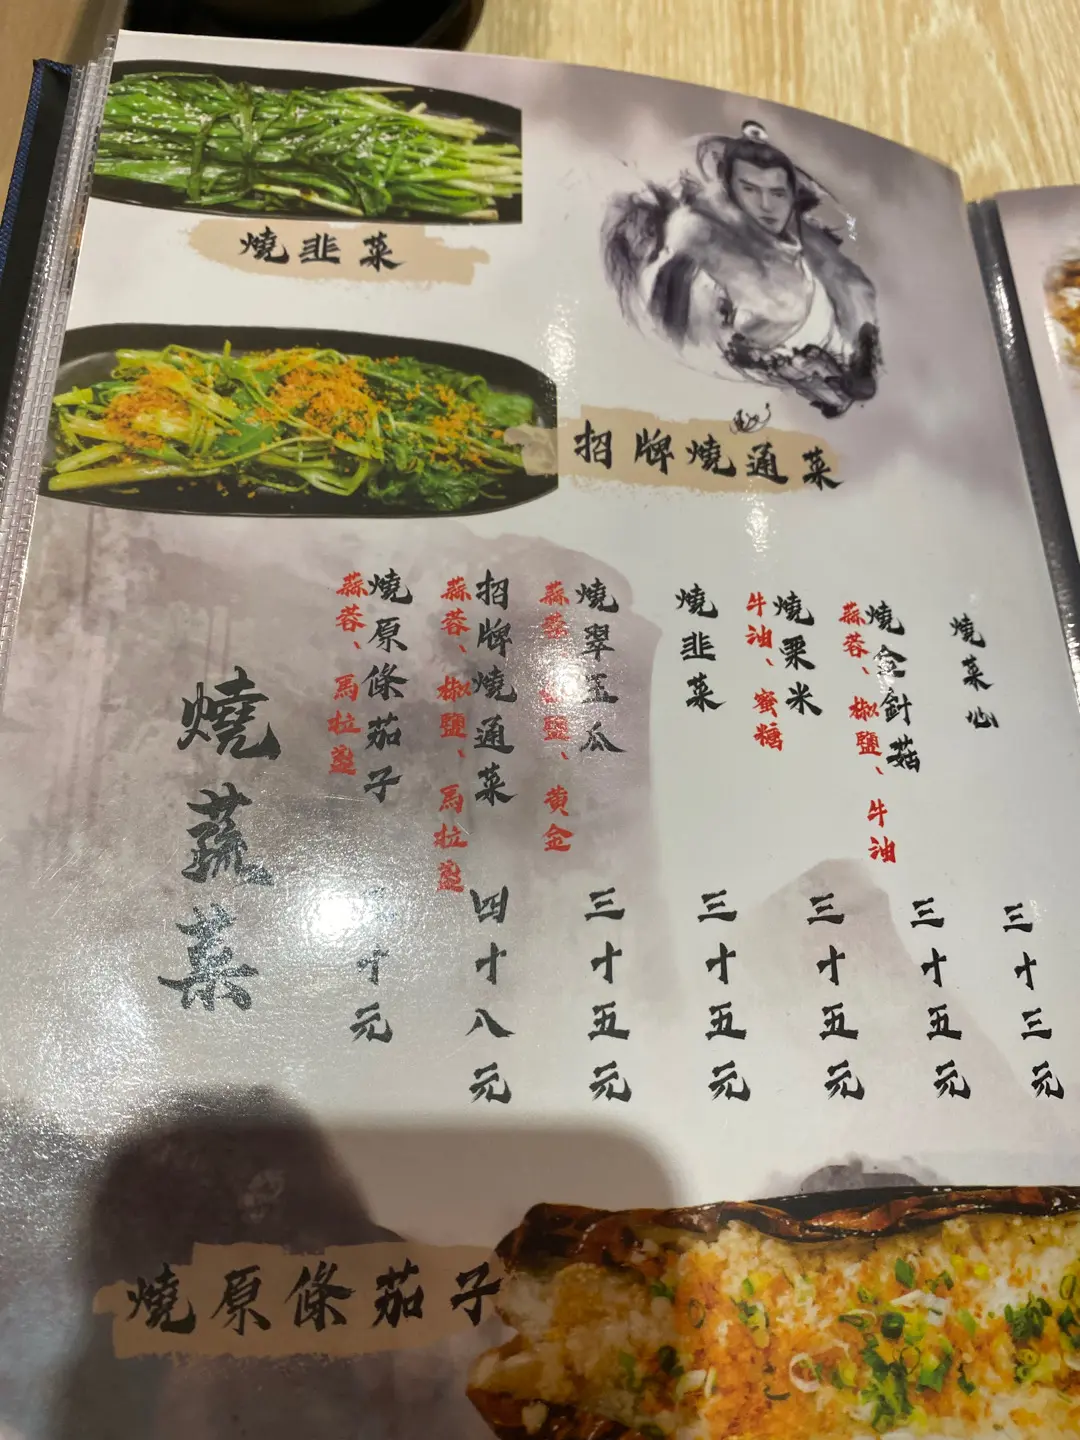 燒韭菜
招牌燒通菜
燒菜心
三十三元
燒金針菇
蒜蓉、椒鹽、牛油
三十五元
燒粟米
牛油、蜜糖
三十五元
燒韭菜
三十五元
燒翠玉瓜
蒜蓉、椒鹽、黃金
三十五元
招牌燒通菜
蒜蓉、椒鹽、馬拉盞
四十八元
燒原條茄子
蒜蓉、馬拉盞
十元
燒蔬菜
燒原條茄子